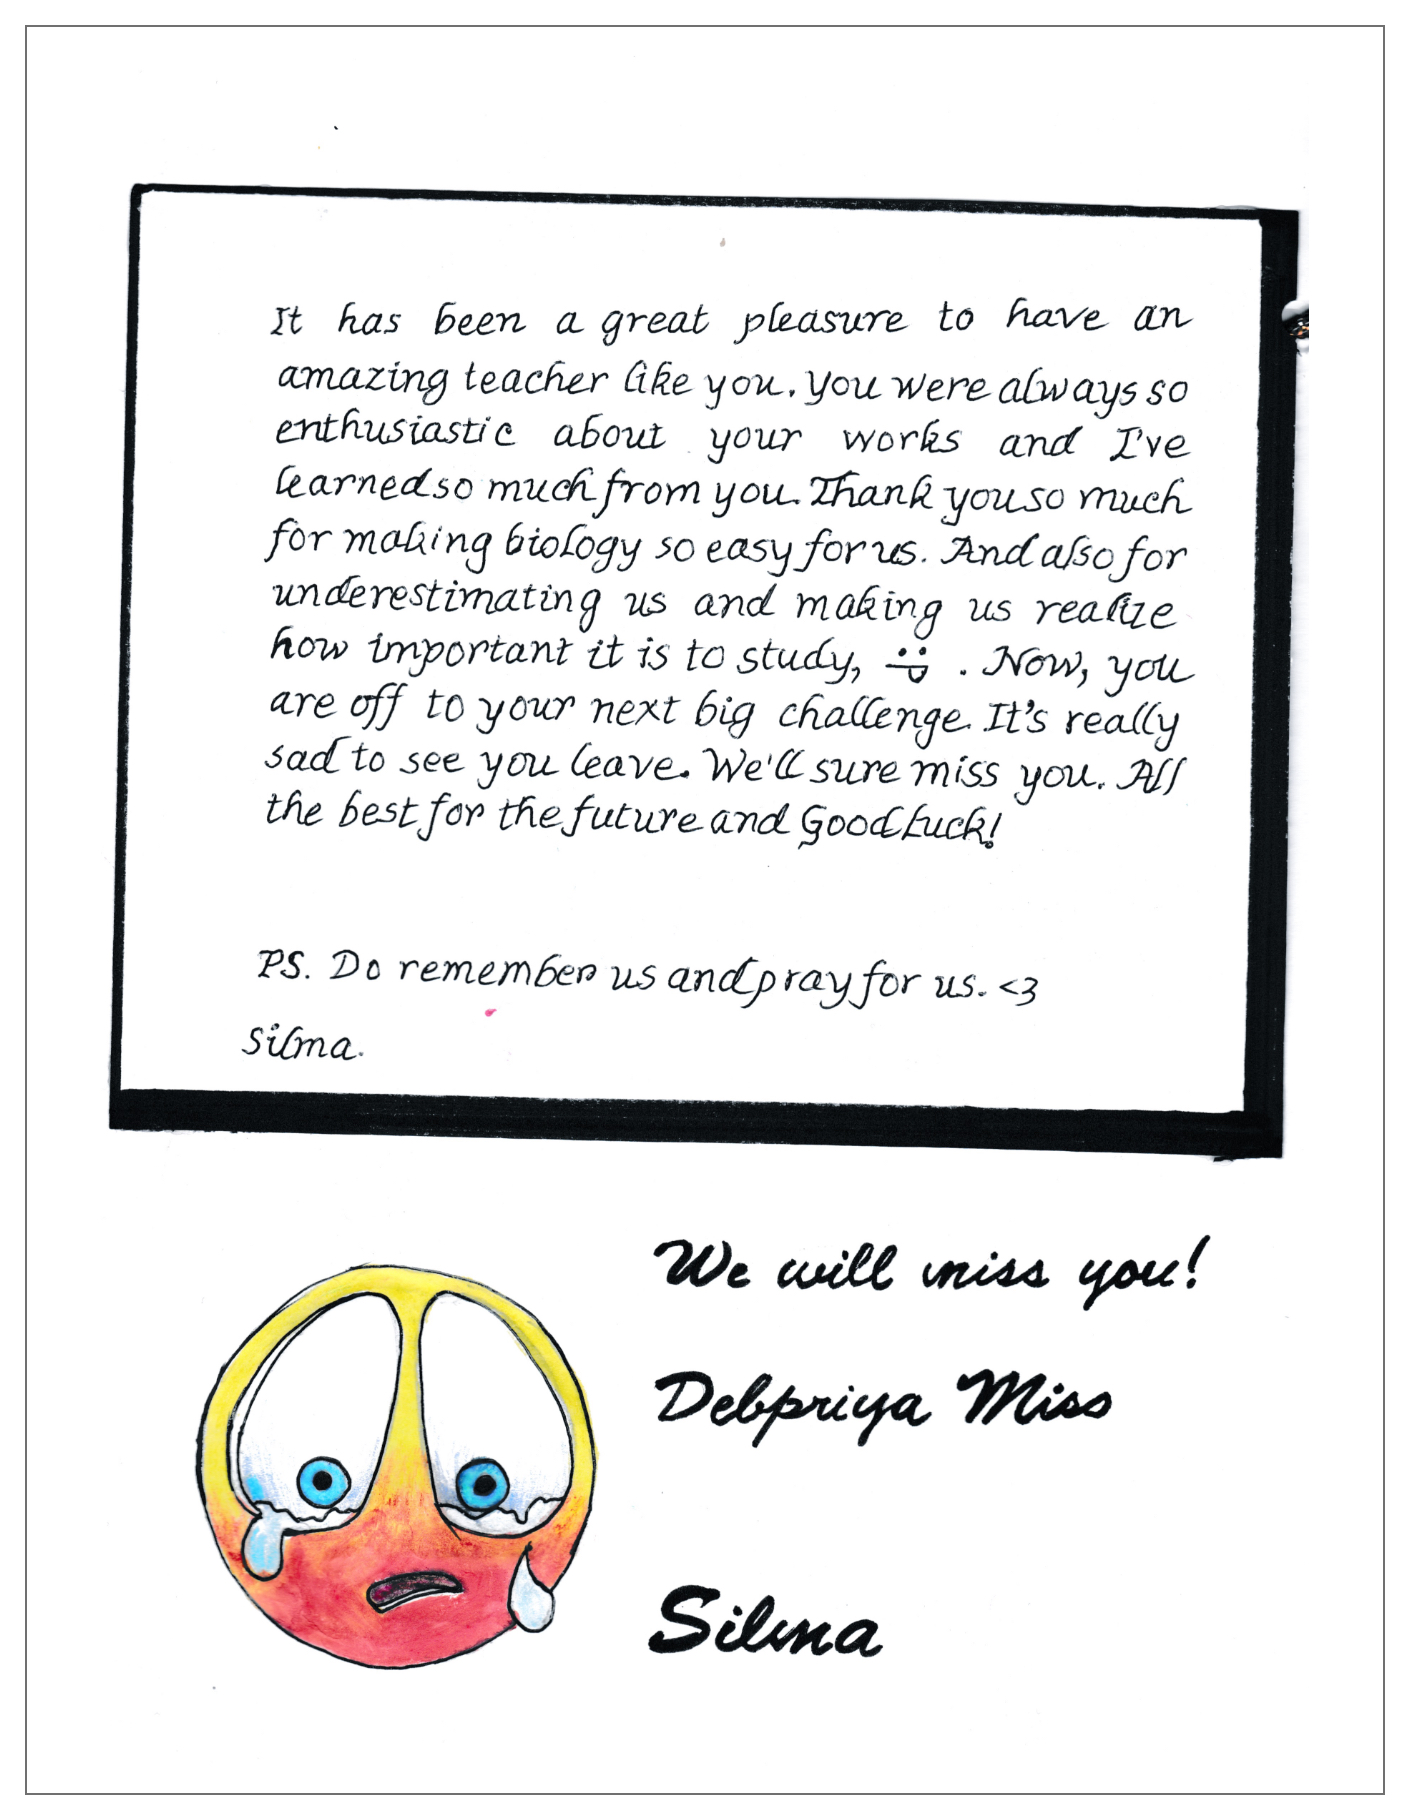 It has been a great pleasure to have an
amazing teacher like you. You were always so
enthusiastic about your works and I've
learned so much from you. Thank you so much
for making biology so easy for us. And also for
underestimating us and making us realize
how important it is to study, . Now, you
are off to your next big challenge. It's really
sad to see you leave. We'll sure miss you. All
the best for the future and Good Luck!
PS. Do remember us and pray for us. <3
Silma.
We will miss you!
Debpriya Miss
Silma